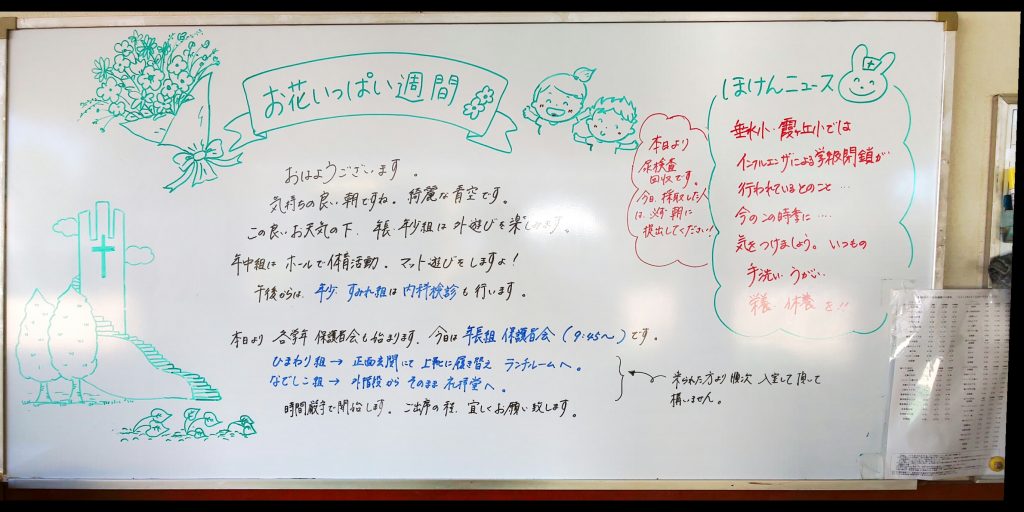 お花いっぱい週間
おはようございます。
気持ちの良い朝ですね。綺麗な青空です。
この良いお天気の下、年長・年少組は外遊びを楽しみます。
年中組はホールで体育活動。マット遊びをしますよ！
午後からは、年少 すみれ組は内科検診も行います。
本日より 各学年 保護者会も始まります。今日は年長組 保護者会（9:45〜）です。
ひまわり組→ 正面玄関にて上靴に履き替え ランチルームへ。
なでしこ組→ 外階段から そのまま 礼拝堂へ。
時間厳守で開始します。ご出席の程、宜しくお願い致します。
来られた方より順次 入室して頂いて
構いません。
本日より
尿検査
回収です。
今日、採取した人
は、必ず朝に
提出してください！
ほけんニュース
垂水小・霞ヶ丘小では
インフルエンザによる学級閉鎖が
行われているとのこと…
今のこの時季に…
気をつけましょう。いつもの
手洗い・うがい、
栄養・休養を!!